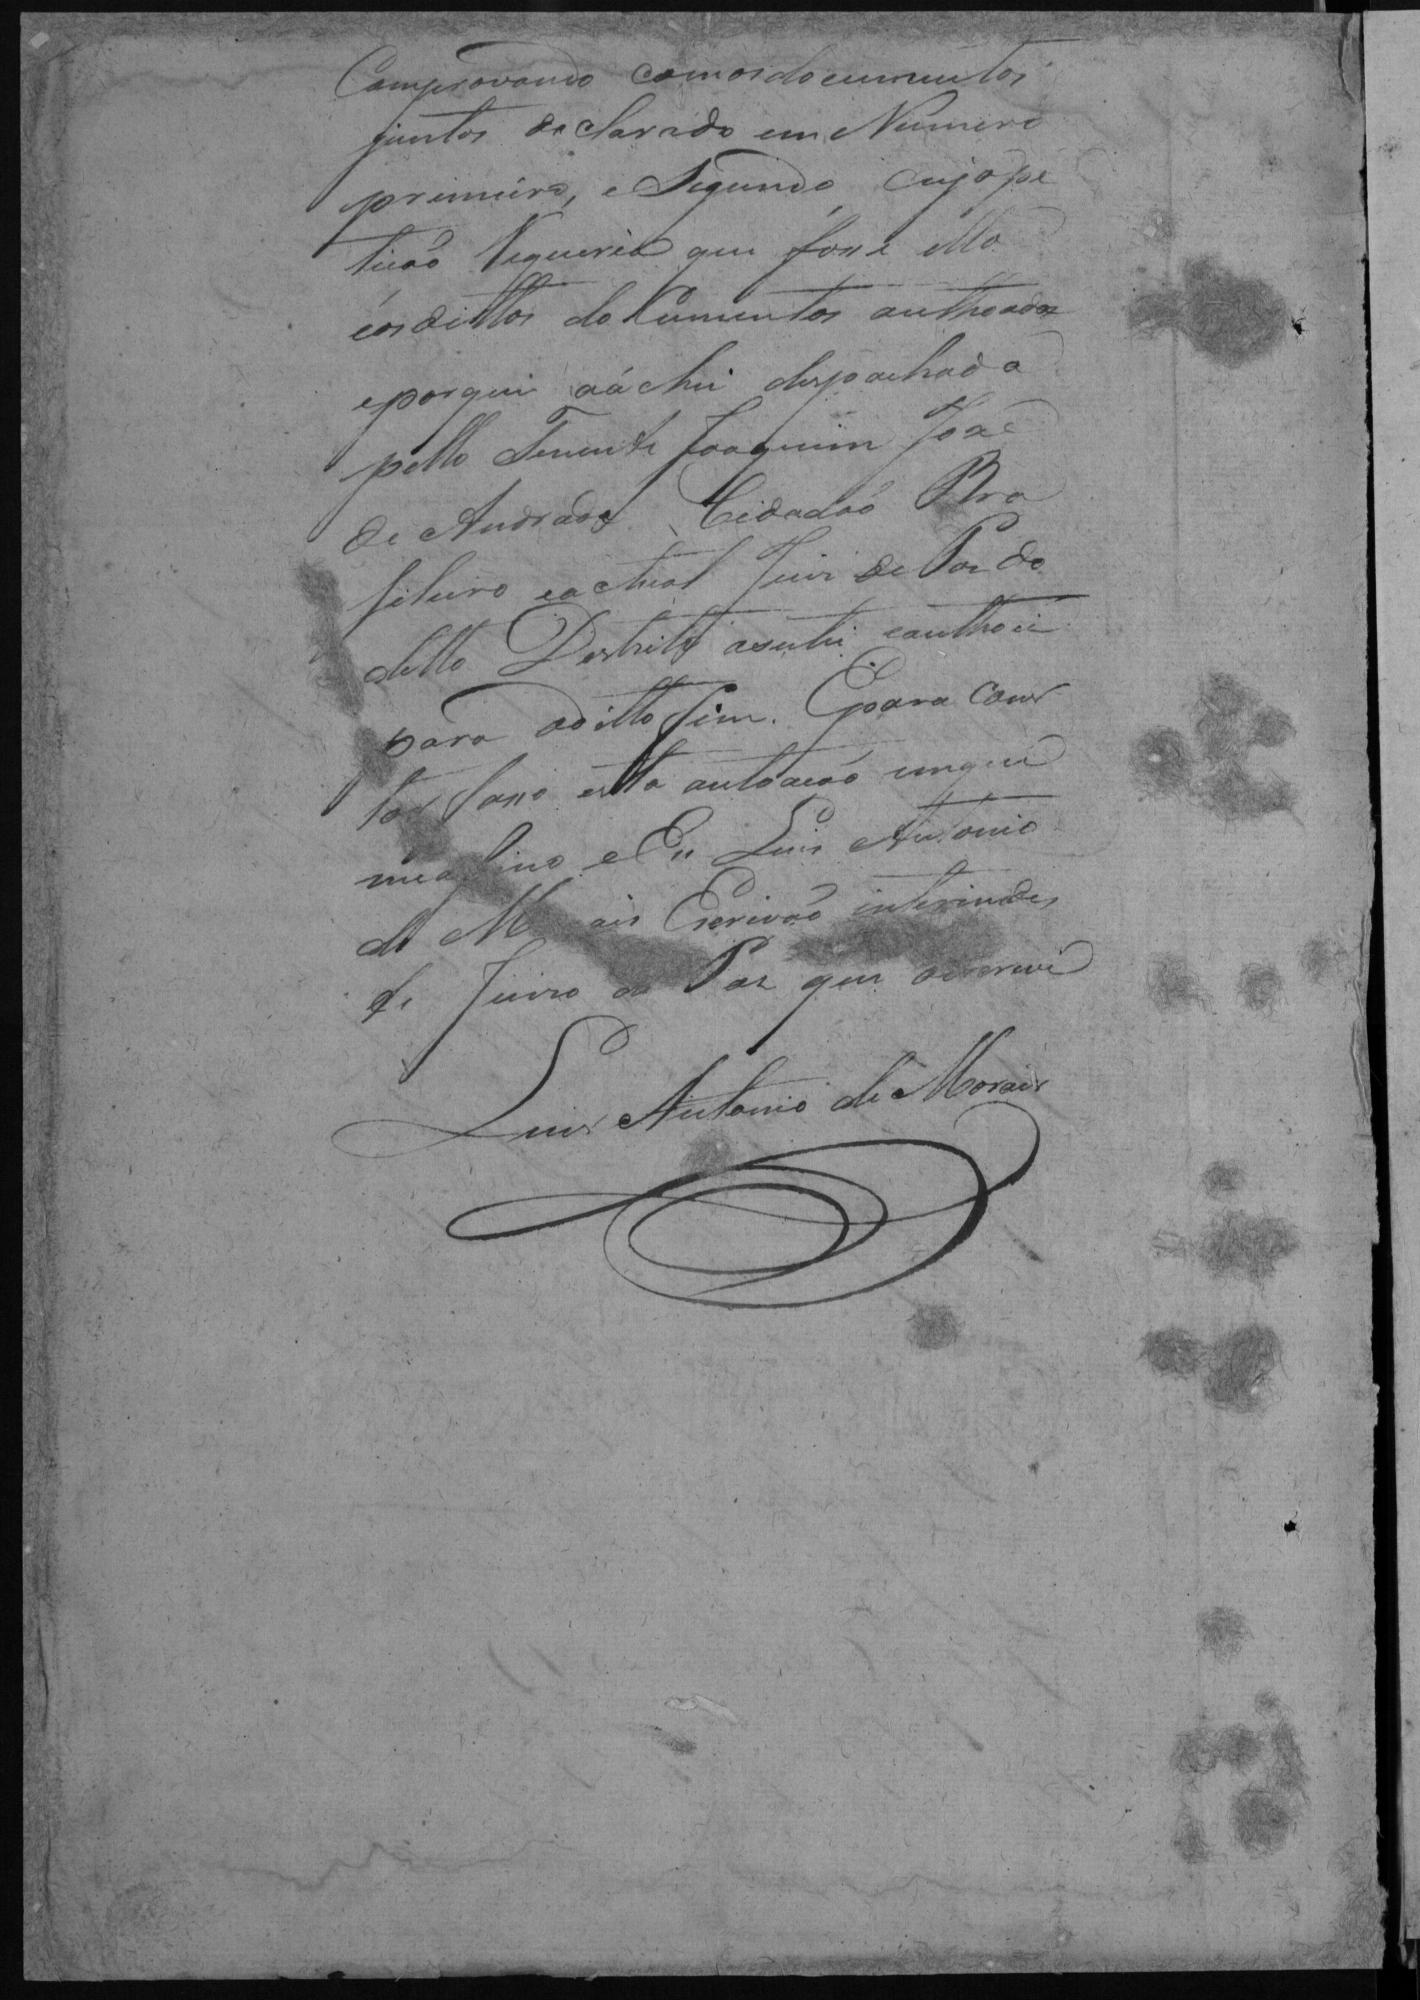 Comprovando comosdocumentos
juntos declarado em Numero
primeiro, e Segundo, cujo pe
ticaõ Requeria que fosse ella
éosdittos documentos autheados
eporque aáchei despachada
pello Tenente Joaquim José
de Andrade Cidadaõ Bra
sileiro eactual Juis de Pas do
ditto Destrito aseitei eauthoei
para oditto fim. Epara cons
tar faso esta autoacaõ emque
meafino e Eu Luis Antonio
de Morais Escrivaõ interino des
te Juiso de Pas que oescrevi
Luis Antonio de Morais